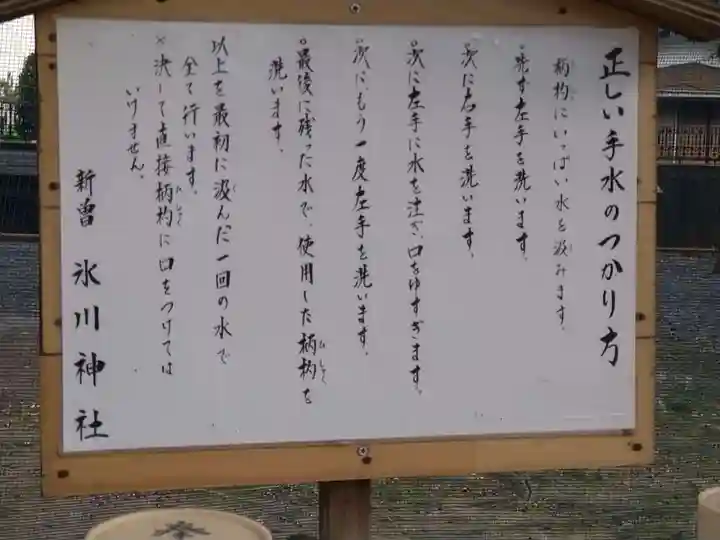 正しい手水のつかり方
柄杓にいっぱい水を汲みます。
。先ず左手を洗います。
次に右手を洗います。
。次に左手に水を注ぎ、口をゆすぎます。
。次に、もう一度左手を洗います。
。最後に残った水で、使用した柄杓を
洗います。
以上を最初に汲んだ一回の水で
全て行います。
※決して直接柄杓に口をつけては
いけません。
新曽 氷川神社